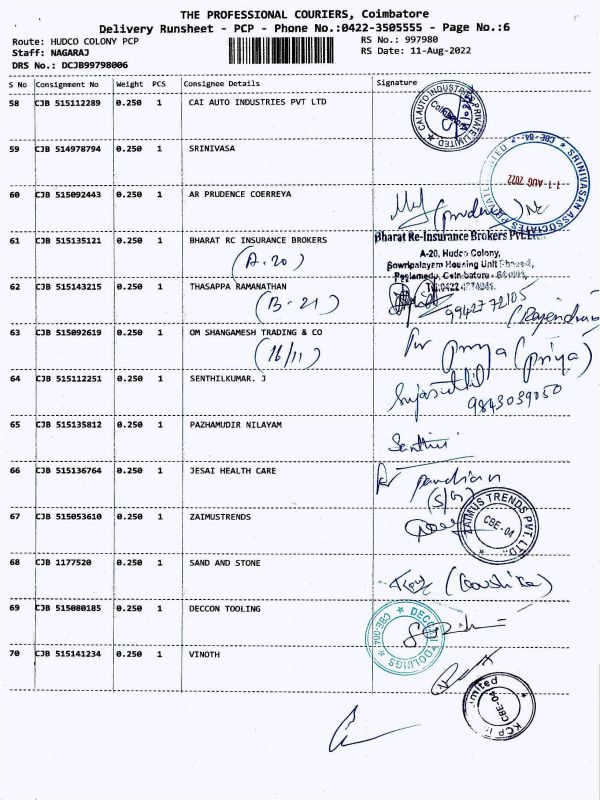 THE PROFESSIONAL COURIERS, Coimbatore
Delivery Runsheet - PCP - Phone No.:0422-3505555 - Page No.:6
Route: HUDCO COLONY PCP
RS No.: 997980
Staff: NAGARAJ
RS Date: 11-Aug-2022
DRS No.: DCJB99798006
S No Consignment No Weight PCS Consignee Details Signature
58 CJB 515112289 0.250 1 CAI AUTO INDUSTRIES PVT LTD
CAI AUTO INDUSTRIES PRIVATE LIMITED
Coimbatore
59 CJB 514978794 0.250 1 SRINIVASA
SRINIVASAN ASSOCIATES PRIVATE LIMITED CBE-04
11 AUG 2022
60 CJB 515092443 0.250 1 AR PRUDENCE COERREYA
61 CJB 515135121 0.250 1 BHARAT RC INSURANCE BROKERS
(A-20)
Bharat Re-Insurance Brokers Pvt.Ltd
A-20, Hudco Colony,
Gowripalayam Housing Unit
Peelamedu, Coimbatore
62 CJB 515143215 0.250 1 THASAPPA RAMANATHAN
(B-21)
9942772105
(Rajendran
63 CJB 515092619 0.250 1 OM SHANGAMESH TRADING & CO
(16/11)
priya (priya)
64 CJB 515112251 0.250 1 SENTHILKUMAR. J
9843039050
65 CJB 515135812 0.250 1 PAZHAMUDIR NILAYAM
66 CJB 515136764 0.250 1 JESAI HEALTH CARE
pandian
67 CJB 515053610 0.250 1 ZAIMUSTRENDS
ZAIMUS TRENDS PVT. LTD.
CBE-04
68 CJB 1177520 0.250 1 SAND AND STONE
69 CJB 515080185 0.250 1 DECCON TOOLING
DECCON TOOLINGS CBE-004
70 CJB 515141234 0.250 1 VINOTH
Limited
CBE-04
KCP